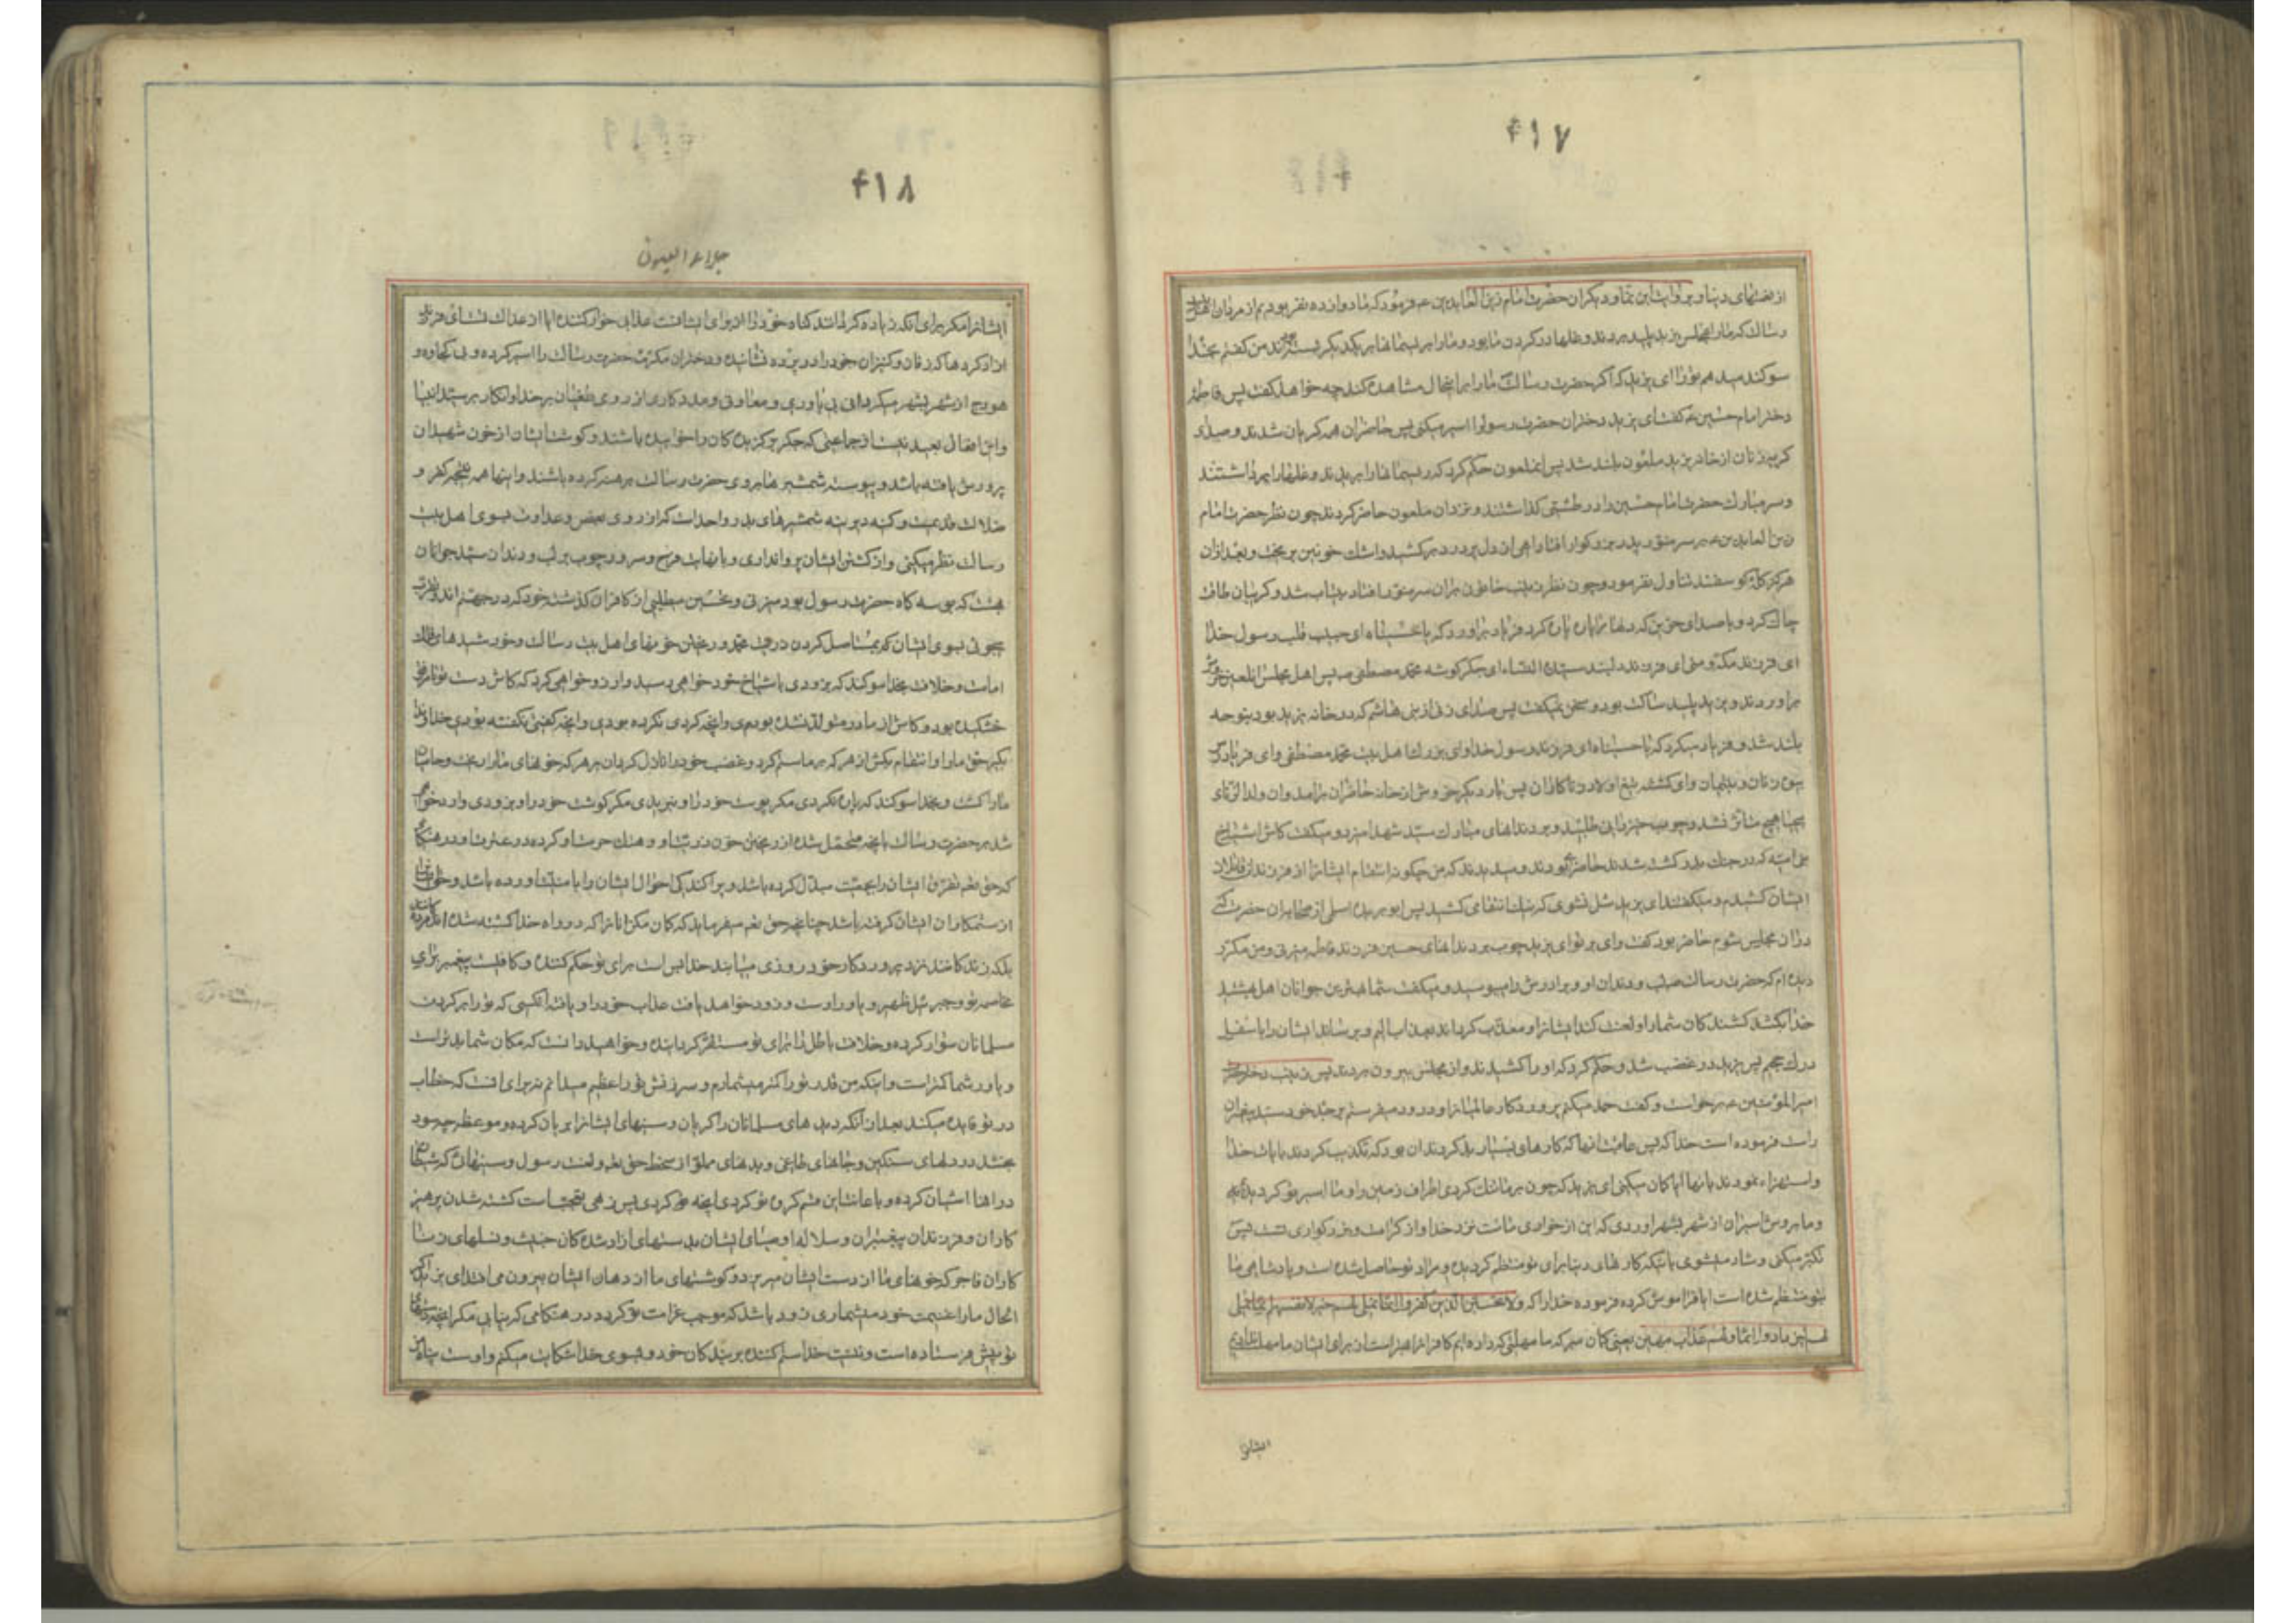 ۴۱۷
از نعمتهای دنیا و بروایت ابن نما و دیگران حضرت امام زین العابدین ع فرمود که ما دوازده نفر بودیم از مردان اهل بیت
رسالت که ما را بمجلس یزید پلید بردند و غلها در گردن ما بود و ما را بریسمانها بر یکدیگر بسته بودند من گفتم بخدا
سوکند میدهم تو را ای یزید که اگر حضرت رسالت ما را براینحال مشاهده کند چه خواهد گفت پس فاطمه
دختر امام حسین ع گفت ای یزید دختران حضرت رسول را اسیر میکنی پس حاضران همه گریان شدند و صدای
گریه زنان از خانه یزید ملعون بلند شد پس انملعون حکم کرد که ریسمانها را بریدند و غلها را برداشتند
و سر مبارک حضرت امام حسین را در طشتی گذاشتند و نزد ان ملعون حاضر کردند چون نظر حضرت امام
زین العابدین ع بر سر منور پدر بزرگوار افتاد اهی از دل پر درد برکشید و اشک خونین بریخت و بعد ازان
هرگز کله گوسفند تناول نفرمود و چون نظر زینب خاتون بران سر منور افتاد بیتاب شد و گریبان طاقت
چاک کرد و با صدای حزین که دلها را پاره پاره کرد فریاد براورد که یا حسیناه ای حبیب قلب رسول خدا
ای فرزند مکه و منی ای فرزند دلبند سیده النساء ای جگر گوشه محمد مصطفی ص پس اهل مجلس انلعین خروش
براوردند و یزید پلید ساکت بود و سخن نمیگفت پس صدای زنی از بنی هاشم که در خانه یزید بود بنوحه
بلند شد و فریاد میکرد که یا حسیناه ای فرزند رسول خدا و ای بزرگ اهل بیت محمد مصطفی وای فریادرس
بیوه زنان و یتیمان وای کشته تیغ اولاد زناکاران پس بار دیگر خروش از خانه حاضران برامد و ان ولد الزنای
بیحیا هیچ متاثر نشد و چوب خیزرانی طلبید و بر دندانهای مبارک سید شهدا میزد و میگفت کاش اشیاخ
بنی امیه که در جنگ بدر کشته شدند حاضر بودند و میدیدند که من چگونه انتقام ایشانرا از فرزندان قاتلان
ایشان کشیدم و میگفتند ای یزید شل نشوی که نیک انتقامی کشیدی پس ابو برده اسلمی از صحابه ان حضرت که
دران مجلس شوم حاضر بود گفت وای بر تو ای یزید چوب بر دندانهای حسین فرزند فاطمه میزنی و من مکرر
دیده ام که حضرت رسالت ص لب و دندان او و برادرش را میبوسید و میگفت شما بهترین جوانان اهل بهشتید
خدا بکشد کشندگان شما را و لعنت کند ایشانرا و معذب گرداند بعذاب الیم و برساند ایشان را باسفل
درک جحیم پس یزید در غضب شد و حکم کرد که او را کشیدند و از مجلس بیرون بردند پس زینب دختر حضرت
امیر المؤمنین ع برخواست و گفت حمد میکنم پروردگار عالمیانرا و درود میفرستم بر جد خود سید پیغمبران
راست فرموده است خدا که پس عاقبت انها که کارهای بسیار بد کردند ان بود که تکذیب کردند بایات خدا
و استهزاء نمودند بانها ایا گمان میکنی ای یزید که چون بر ما تنگ کردی اطراف زمین را و ما اسیر تو گردیده ایم
و ما را بروش اسیران از شهر بشهر اوردی که این از خواری ماست نزد خدا و از کرامت و بزرگواری تست پس
تکبر میکنی و شاد میشوی بانیکه کارهای دنیا برای تو منتظم گردیده و مراد تو حاصل شده است و پادشاهی ما
بتو منتظم شده است ایا فراموش کرده فرموده خدا را که ولا تحسبن الذین کفروا انما نملی لهم خیر لانفسهم انما نملی
لهم لیزدادوا اثما ولهم عذاب مهین یعنی گمان مبر که ما مهلتی که داده ایم کافرانرا بهتر است از برای ایشان ما مهلت نداده ایم
ایشانرا
۴۱۸
جلاء العیون
ایشانرا مگر برای انکه زیاده گردانند گناه خود را از برای ایشانست عذابی خوارکننده ایا از عدالت تست ای فرزند
ازادکردها که زنان و کنیزان خود را در پرده نشانیده و دختران مکرمه حضرت رسالت را اسیر کرده و بی کجاوه و
هودج از شهر بشهر میگردانی بی یاوری و معاونی و مددکاری از روی طغیان بر خدا و انکار بر سید انبیا
و این افعال بعید نیست از جماعتی که جگر برگزیده گان را خوائیده باشند و گوشت ایشان از خون شهیدان
پرورش یافته باشد و پیوسته شمشیرها بروی حضرت رسالت برهنه کرده باشند و اینها همه نتیجه کفر و
ضلالت قدیمست و کینه دیرینه شمشیرهای بدر و احد است که از روی بغض و عداوت بسوی اهل بیت
رسالت نظر میکنی و از کشتن ایشان پروا نداری و بانهایت فرح و سرور چوب بر لب و دندان سید جوانان
بهشت که بوسه گاه حضرت رسول بود میزنی و تحسین میطلبی از کافران گذشته خود که در جهنم اند و تقرب
میجوئی بسوی ایشان که مستاصل کردن ذریت محمد و ریختن خونهای اهل بیت رسالت و خورشیدهای فلک
امامت و خلافت بخدا سوگند که بزودی باشیاخ خود خواهی رسید و ارزو خواهی کرد که کاش دست تو از مرفق
خشکیده بود و کاش از مادر متولد نشده بودی و انچه کردی نکرده بودی و انچه گفتی نگفته بودی خداوندا
بگیر حق ما را و انتقام بکش از هر که بر ما ستم کرد و غضب خود را نازل گردان بر هر که خونهای ما را ریخت و حامیان
ما را کشت و بخدا سوگند که پاره نکردی مگر پوست خود را و نبریدی مگر گوشت خود را و بزودی وارد خواهی
شد بر حضرت رسالت بانچه متحمل شده از ریختن خون ذریت او و هتک حرمت او کرده در عترت او در هنگامی
که حق تعم تفرق ایشان را بجمعیت مبدل کرده باشد و پراکندگی احوال ایشان را بامنیت اورده باشد و حق ایشانرا
از ستمکاران ایشان گرفته باشد چنانچه حق تعم میفرماید که گمان مکن انانرا که در راه خدا کشته شده اند مردگانند
بلکه زندگانند نزد پروردگار خود روزی مییابند خدا بس است برای تو حکم کننده و کافیست پیغمبر برای
مخاصمه تو و جبرئیل ظهیر و یاور اوست و زود خواهد یافت عذاب خود را و یافت انکسی که تو را بر گردن
مسلمانان سوار کرده و خلافت باطل را برای تو مستقر گردانیده و خواهید دانست که مکان شما بدتر است
و یاور شما کمتر است و اینکه من قدر تو را کمتر میشمارم و سرزنش تو را عظیم میدانم نه برای انست که خطاب
در تو فایده میکند بعد از انکه دیده های مسلمانان را گریان و سینهای ایشانرا بریان کرده و موعظه چه سود
بخشد در دلهای سنگین و جانهای طاغی و بدنهای مملو از سخط حق تعم و لعنت رسول و سینهای که شیطان
در انها اشیان کرده و باعانت این قسم گروه تو کردی انچه کردی پس زهی تعجب است کشته شدن پرهیز
کاران و فرزندان پیغمبران و سلاله اوصیای ایشان بدستهای ازادشده گان خبیث و نسلهای زنا
کاران فاجر که خونهای ما از دست ایشان میریزد و گوشتهای ما از دهان ایشان بیرون می افتد ای یزید اگر
الحال ما را غنیمت خود میشماری زود باشد که موجب غرامت تو گردد در هنگامی که نیابی مگر انچه دستهای
تو پیش فرستاده است و نیست خدا ستم کننده بر بندگان خود و بسوی خدا شکایت میکنم و اوست پناه من